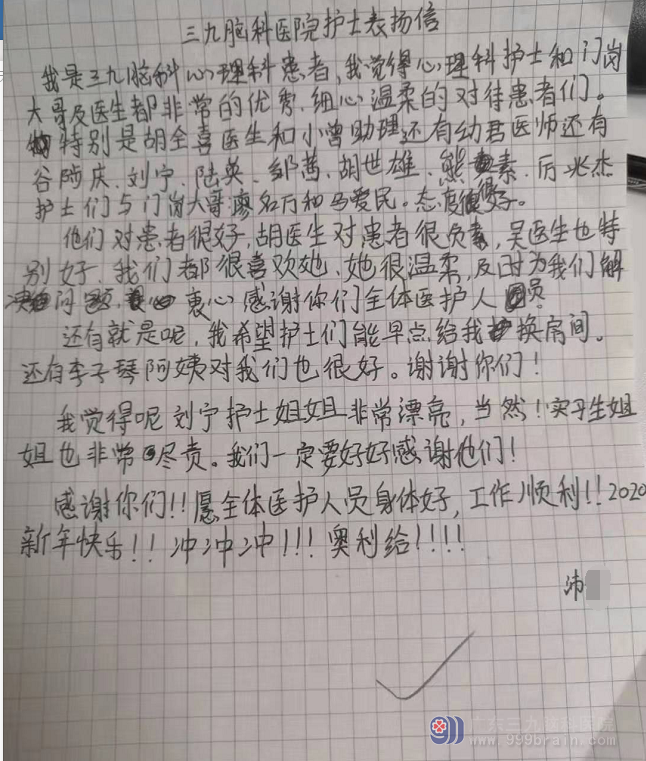 三九脑科医院护士表扬信
我是三九脑科心理科患者,我觉得心理科护士和门岗
大哥及医生都非常的优秀,细心温柔的对待患者们。
特别是胡全喜医生和小曾助理还有幼君医师还有
谷陆庆、刘宁、陆英、邹茜、胡世雄、熊素、后兆杰
护士们与门岗大哥廖名万和马爱民。态度很好。
他们对患者很好,胡医生对患者很负责,吴医生也特
别好,我们都很喜欢她,她很温柔,及时为我们解
决问题,衷心感谢你们全体医护人员
还有就是呢,我希望护士们能早点给我换房间。
还有李子琴阿姨对我们也很好。谢谢你们!
我觉得呢刘宁护士姐姐非常漂亮,当然!实习生姐
姐也非常尽责。我们一定要好好感谢他们!
感谢你们!!愿全体医护人员身体好,工作顺利!!2020
新年快乐!!冲冲冲!!!奥利给!!!!
沛
广东三九脑科医院
www.999brain.com